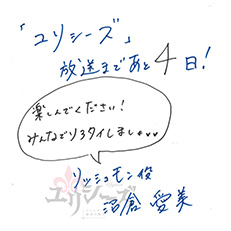 「ユリシーズ」
放送まであと4日!
楽しんでください!
みんなでリアタイしましょ
リッシュモン役
沼倉 愛美
ユリシーズ